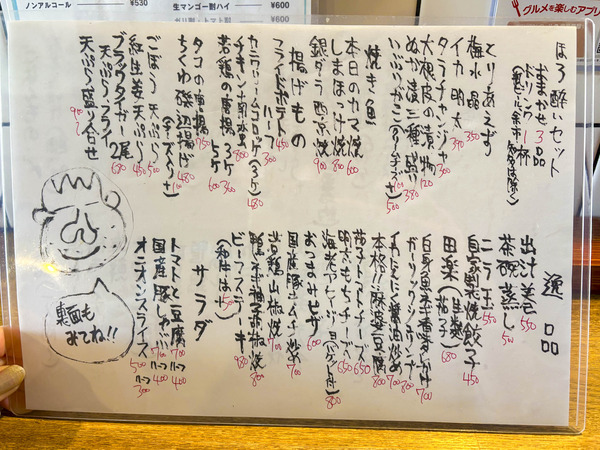 ノンアルコール ¥530
生マンゴー割ハイ ¥600
ガリ割・トマト割 ¥600
グルメを楽しむアプリ
ほろ酔いセット
おまかせ3品
ドリンク1杯
とりあえず
梅水晶 350
イカ明太 390
タラチャンジャ 300
大根皮の漬物 120
ぬか漬三種盛り 500
焼き魚
本日のカマ焼 600
しまほっけ焼 800
銀ダラ西京焼 900
揚げもの
フライドポテト 450
ハーフ 300
カニクリームコロッケ2ヶ 480
チキン南蛮 800
若鶏の唐揚 3ヶ 360
5ヶ 600
タコの唐揚 750
ちくわ磯辺揚げ 480
(チーズ入り+)
ごぼう天ぷら 500
紅生姜天ぷら 450
ブラックタイガー2尾
天ぷら・フライ 680
天ぷら盛り合せ 900〜
逸品
出汁巻 550
茶碗蒸し 500
ニラ玉 550
自家製焼餃子 450
田楽(生麩) 680
(茄子) 550
白身魚木の子香味あんかけ 700
ガーリックシュリンプ 800
イカにんにく醤油炒め 700
本格派麻婆豆腐 800
茄子トマトチーズ 650
明太もちチーズ 650
おつまみピザ 600
国産豚キムチ炒め 700
若鶏山椒焼 700
鴨ネギ柚子胡椒焼
ビーフステーキ 980
サラダ
トマトと豆腐 700 ハーフ 400
国産豚しゃぶ 700 ハーフ 400
オニオンスライス 500 ハーフ 300
裏面も
みてね!!